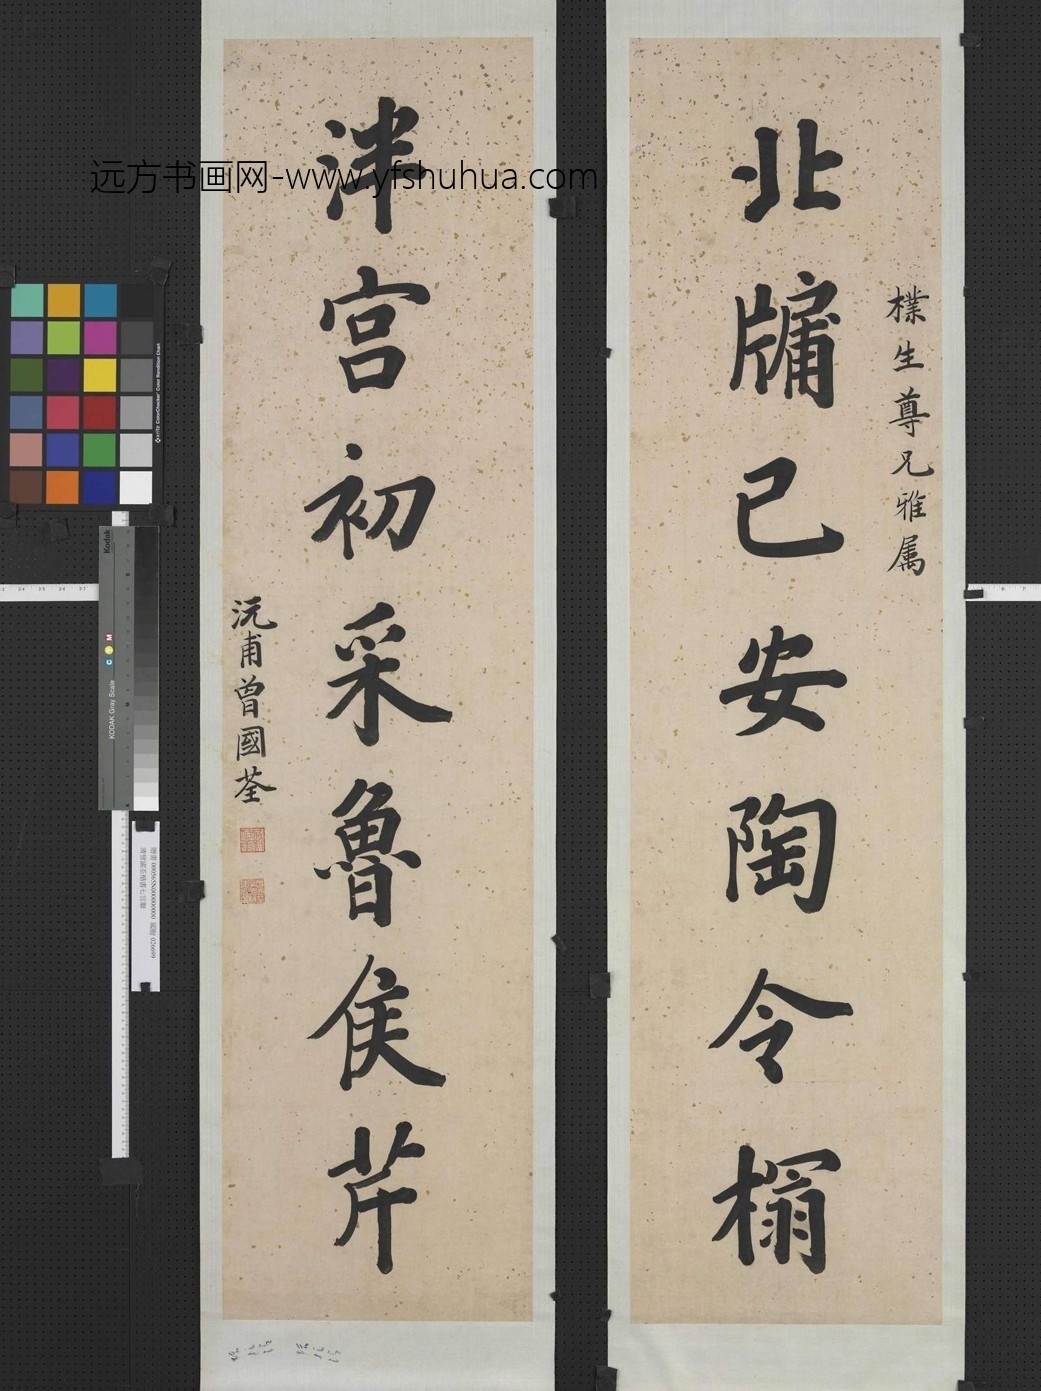 樸生尊兄雅属
北牖已安陶令榻
泮宫初采魯侯芹
沅甫曾國荃
远方书画网-www.yfshuhua.com
Kodak
KODAK Gray Scale
C Y M